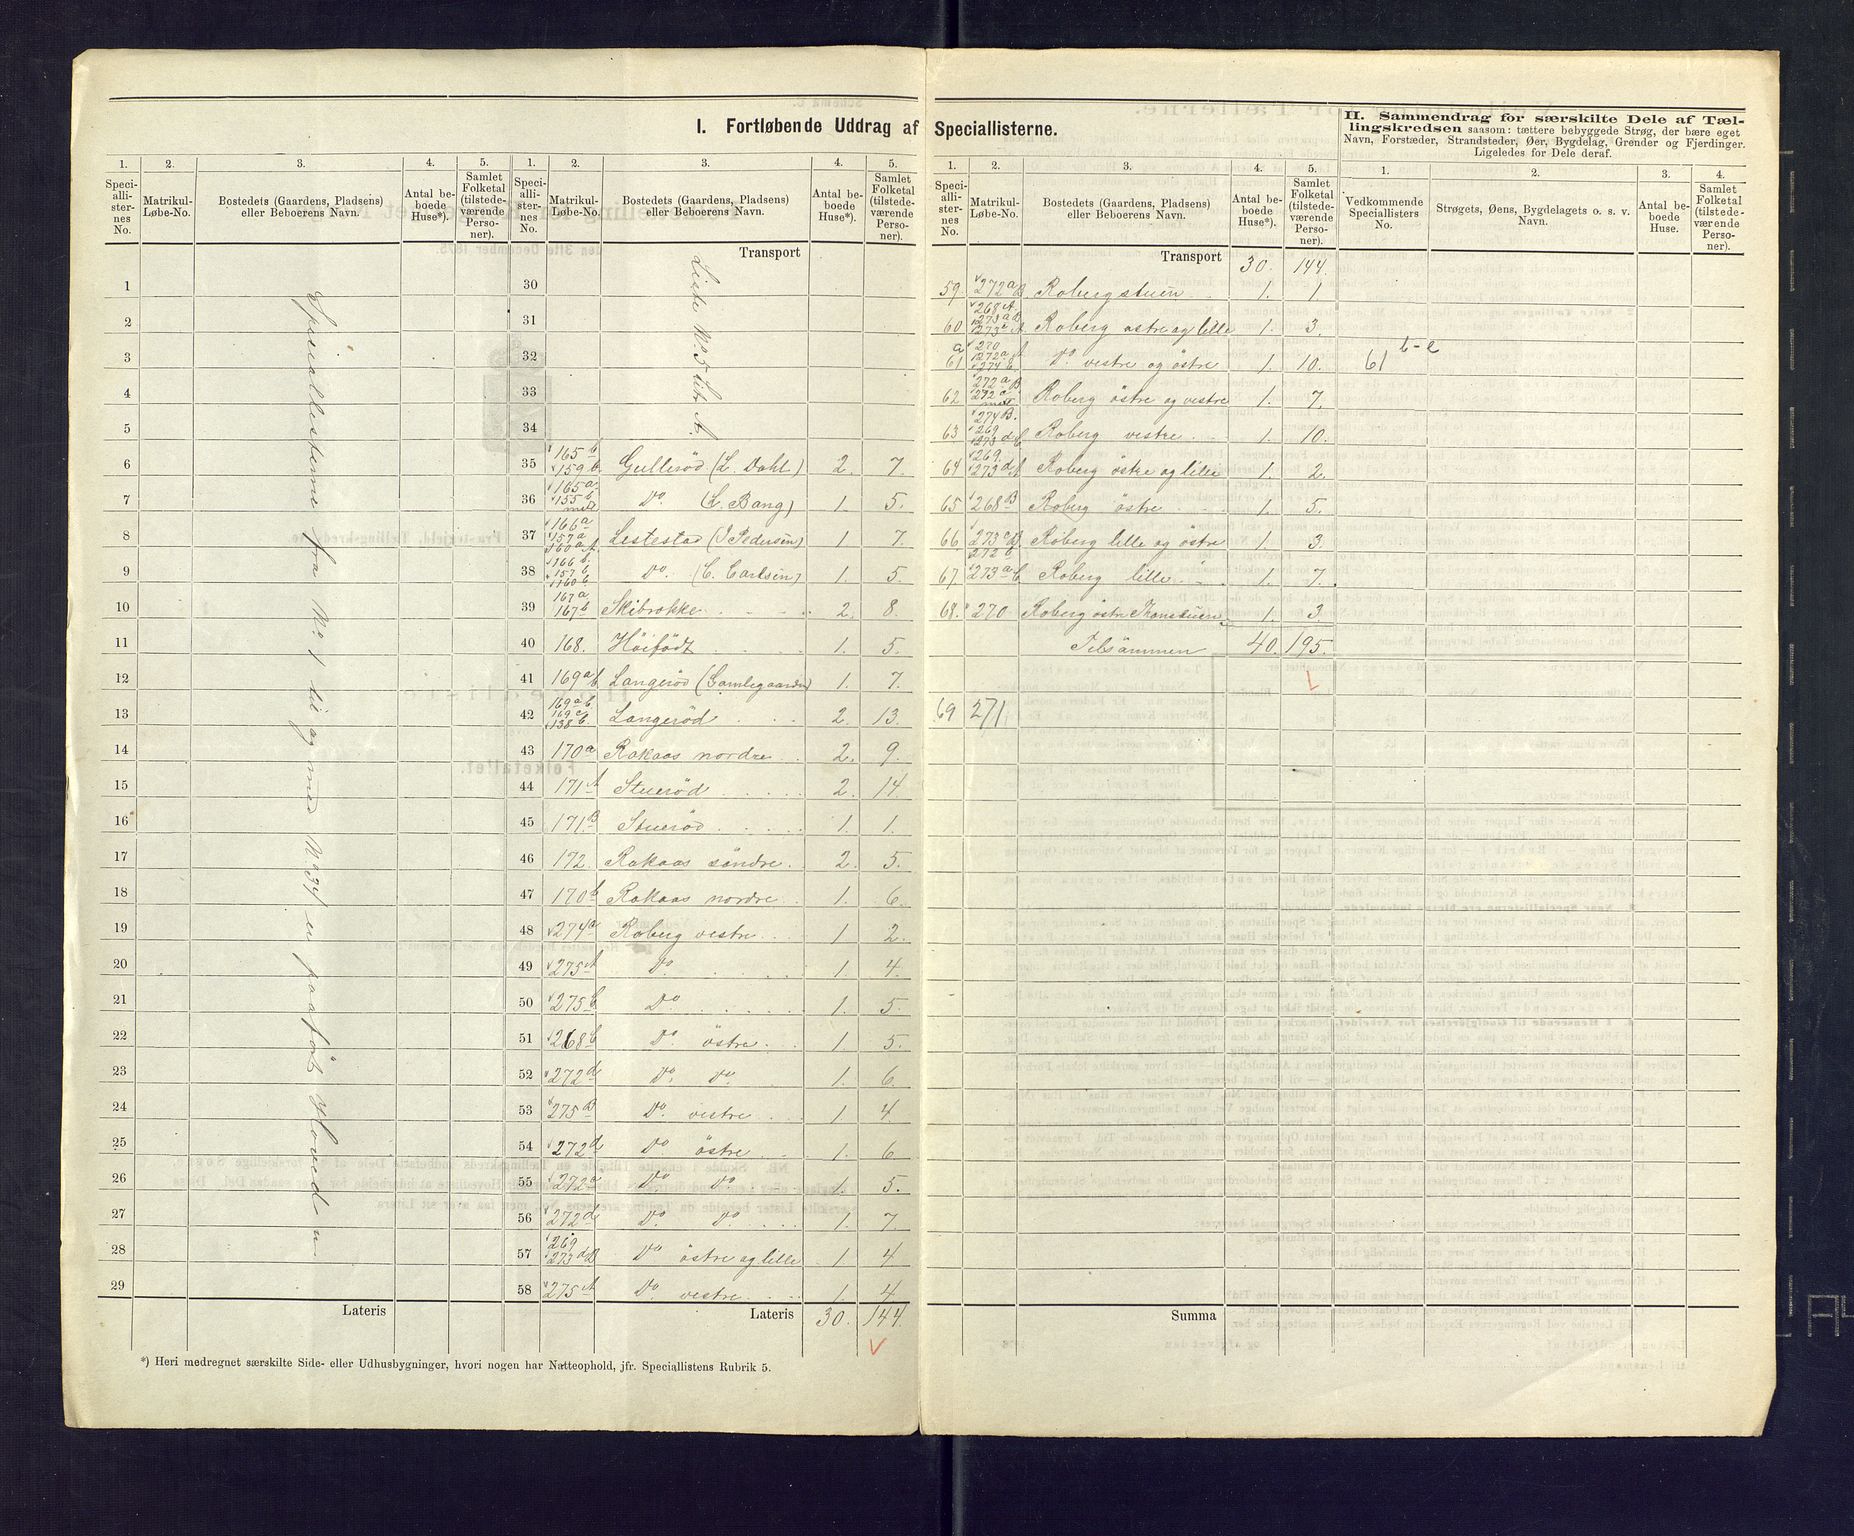 I. Fortløbende Uddrag af Speciallisterne.
1. 2. 3. 4. 5.
Speciallisternes No. Matrikul-Løbe-No. Bostedets (Gaardens, Pladsens) eller Beboerens Navn. Antal beboede Huse*). Samlet Folketal (tilstedeværende Personer).
1
2
3
4
5
6
7
8
9
10
11
12
13
14
15
16
17
18
19
20
21
22
23
24
25
26
27
28
29
Specialisterne fra No. 1 til og med No. 34 er paaført Hoved
Lateris
1. 2. 3. 4. 5.
Speciallisternes No. Matrikul-Løbe-No. Bostedets (Gaardens, Pladsens) eller Beboerens Navn. Antal beboede Huse*). Samlet Folketal (tilstedeværende Personer).
Transport
Liste No. 5 Litr A.
30
31
32
33
34
35 165 b 159 b. Gulleröd (L. Dahl) 2. 7.
36 165 a. 155 b med Do. (L. Bang) 1. 5.
37 166 a 157 a 160 a A. Lestestad (J Pedersen) 1 7.
38 166 b. 157 b 160 b Do. (C. Carlsen) 1. 5.
39 167 a 167 b Skibrokke 2. 8.
40 168. Höifödt 1. 5.
41 169 a b Langeröd (Gamlegaarden) 1. 7.
42 169 a b 169 c 138 b. Langeröd 2. 13.
43 170 a Rakaas nordre 2. 9.
44 171 A Stueröd 2. 14.
45 171. B Stueröd 1. 1.
46 172. Rakaas söndre 2. 5.
47 170 b Rakaas nordre 1. 6.
48 274 a Roberg vestre 1 2.
49 275 A Do. 1. 4.
50 275 b Do. 1. 5.
51 268 b Do. östre 1. 5.
52 272 d Do. Do. 1. 6
53 275 B Do. vestre 1. 4
54 272 d Do östre 1. 6
55 272 a Do. Do. 1. 5.
56 272 d Do. Do. 1 7
57 269 273 d B Do östre og lille 1 4
58 275 A Do. vestre 1. 4
Lateris 30. 144.
*) Heri medregnet særskilte Side- eller Udhusbygninger, hvori nogen har Natteophold, jfr. Speciallistens Rubrik 5.
1. 2. 3. 4. 5.
Speciallisternes No. Matrikul-Løbe-No. Bostedets (Gaardens, Pladsens) eller Beboerens Navn. Antal beboede Huse*). Samlet Folketal (tilstedeværende Personer).
Transport 30. 144.
59 272 a B Robergstuen 1. 1.
60 268 A 273 a B 273 c A Roberg östre og lille 1. 3.
61 a 270 272 a A 274 b Do vestre og östre 1. 10.
62 272 a B 272 c med Roberg östre og vestre 1. 7.
63 274 B. 269 273 d C Roberg vestre 1. 10.
64 269. 273 d A Roberg östre og lille 1. 2.
65 268 B Roberg östre 1. 5.
66 273 a D 272 b Roberg lille og östre 1. 3.
67 273 a C Roberg lille 1. 7.
68. 270 Roberg östre Thonstuen 1. 3
Tilsammen 40. 195.
69 271
Summa
II. Sammendrag for særskilte Dele af Tællingskredsen saasom: tættere bebyggede Strøg, der bære eget Navn, Forstæder, Strandsteder, Øer, Bygdelag, Grender og Fjerdinger. Ligeledes for Dele deraf.
1. 2. 3. 4.
Vedkommende Speciallisters No. Strøgets, Øens, Bygdelagets o. s. v. Navn. Antal beboede Huse. Samlet Folketal (tilstedeværende Personer).
61 b-e